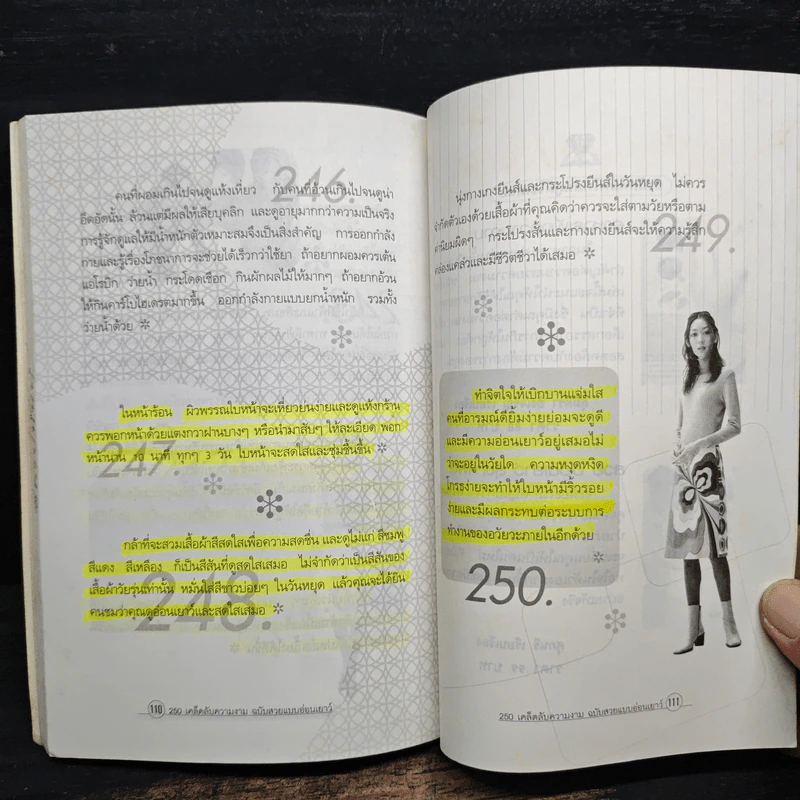 246.
คนที่ผอมเกินไปจนดูแห้งเหี่ยว กับคนที่อ้วนเกินไปจนดูน่า
อึดอัดนั้น ล้วนแต่มีผลให้เสียบุคลิก และดูอายุมากกว่าความเป็นจริง
การรู้จักดูแลให้มีน้ำหนักตัวเหมาะสมจึงเป็นสิ่งสำคัญ การออกกำลัง
กายและรู้เรื่องโภชนาการจะช่วยได้เร็วกว่าใช้ยา ถ้าอยากผอมควรเต้น
แอโรบิก ว่ายน้ำ กระโดดเชือก กินผักผลไม้ให้มากๆ ถ้าอยากอ้วน
ให้กินคาร์โบไฮเดรตมากขึ้น ออกกำลังกายแบบยกน้ำหนัก รวมทั้ง
ว่ายน้ำด้วย
ในหน้าร้อน ผิวพรรณใบหน้าจะเหี่ยวย่นง่ายและดูแห้งกร้าน
ควรพอกหน้าด้วยแตงกวาฝานบางๆ หรือนำมาสับๆ ให้ละเอียด พอก
หน้านาน 10 นาที ทุกๆ 3 วัน ใบหน้าจะสดใสและชุ่มชื้นขึ้น
247.
กล้าที่จะสวมเสื้อผ้าสีสดใสเพื่อความสดชื่น และดูไม่แก่ สีชมพู
สีแดง สีเหลือง ก็เป็นสีสันที่ดูสดใสเสมอ ไม่จำกัดว่าเป็นสีสันของ
เสื้อผ้าวัยรุ่นเท่านั้น หมั่นใส่สีขาวบ่อยๆ ในวันหยุด แล้วคุณจะได้ยิน
คนชมว่าคุณดูอ่อนเยาว์และสดใสเสมอ
248.
110 250 เคล็ดลับความงาม ฉบับสวยแบบอ่อนเยาว์
นุ่งกางเกงยีนส์และกระโปรงยีนส์ในวันหยุด ไม่ควร
จำกัดตัวเองด้วยเสื้อผ้าที่คุณคิดว่าควรจะใส่ตามวัยหรือตาม
ค่านิยมผิดๆ กระโปรงสั้นและกางเกงยีนส์จะให้ความรู้สึก
คล่องแคล่วและมีชีวิตชีวาได้เสมอ
249.
ทำจิตใจให้เบิกบานแจ่มใส
คนที่อารมณ์ดียิ้มง่ายย่อมจะดูดี
และมีความอ่อนเยาว์อยู่เสมอไม่
ว่าจะอยู่ในวัยใด ความหงุดหงิด
โกรธง่ายจะทำให้ใบหน้ามีริ้วรอย
ง่ายและมีผลกระทบต่อระบบการ
ทำงานของอวัยวะภายในอีกด้วย
250.
250 เคล็ดลับความงาม ฉบับสวยแบบอ่อนเยาว์ 111